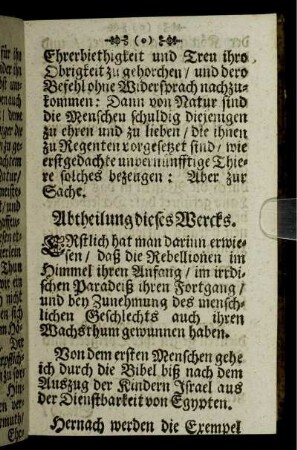 (0)
Ehrerbiethigkeit und Treu ihro
Obrigkeit zu gehorchen / und dero
Befehl ohne Widersprach nachzu-
kommen: Dann von Natur sind
die Menschen schuldig diejenigen
zu ehren und zu lieben / die ihnen
zu Regenten vorgesetzet sind / wie
erstgedachte unvernünfftige Thie-
re solches bezeugen: Aber zur
Sache.
Abtheilung dieses Wercks.
ERstlich hat man darinn erwie-
sen / daß die Rebellionen im
Himmel ihren Anfang / im irrdi-
schen Paradeiß ihren Fortgang /
und bey Zunehmung des mensch-
lichen Geschlechts auch ihren
Wachsthum gewunnen haben.
Von dem ersten Menschen gehe
ich durch die Bibel biß nach dem
Auszug der Kindern Israel aus
der Dienstbarkeit von Egypten.
Hernach werden die Exempel